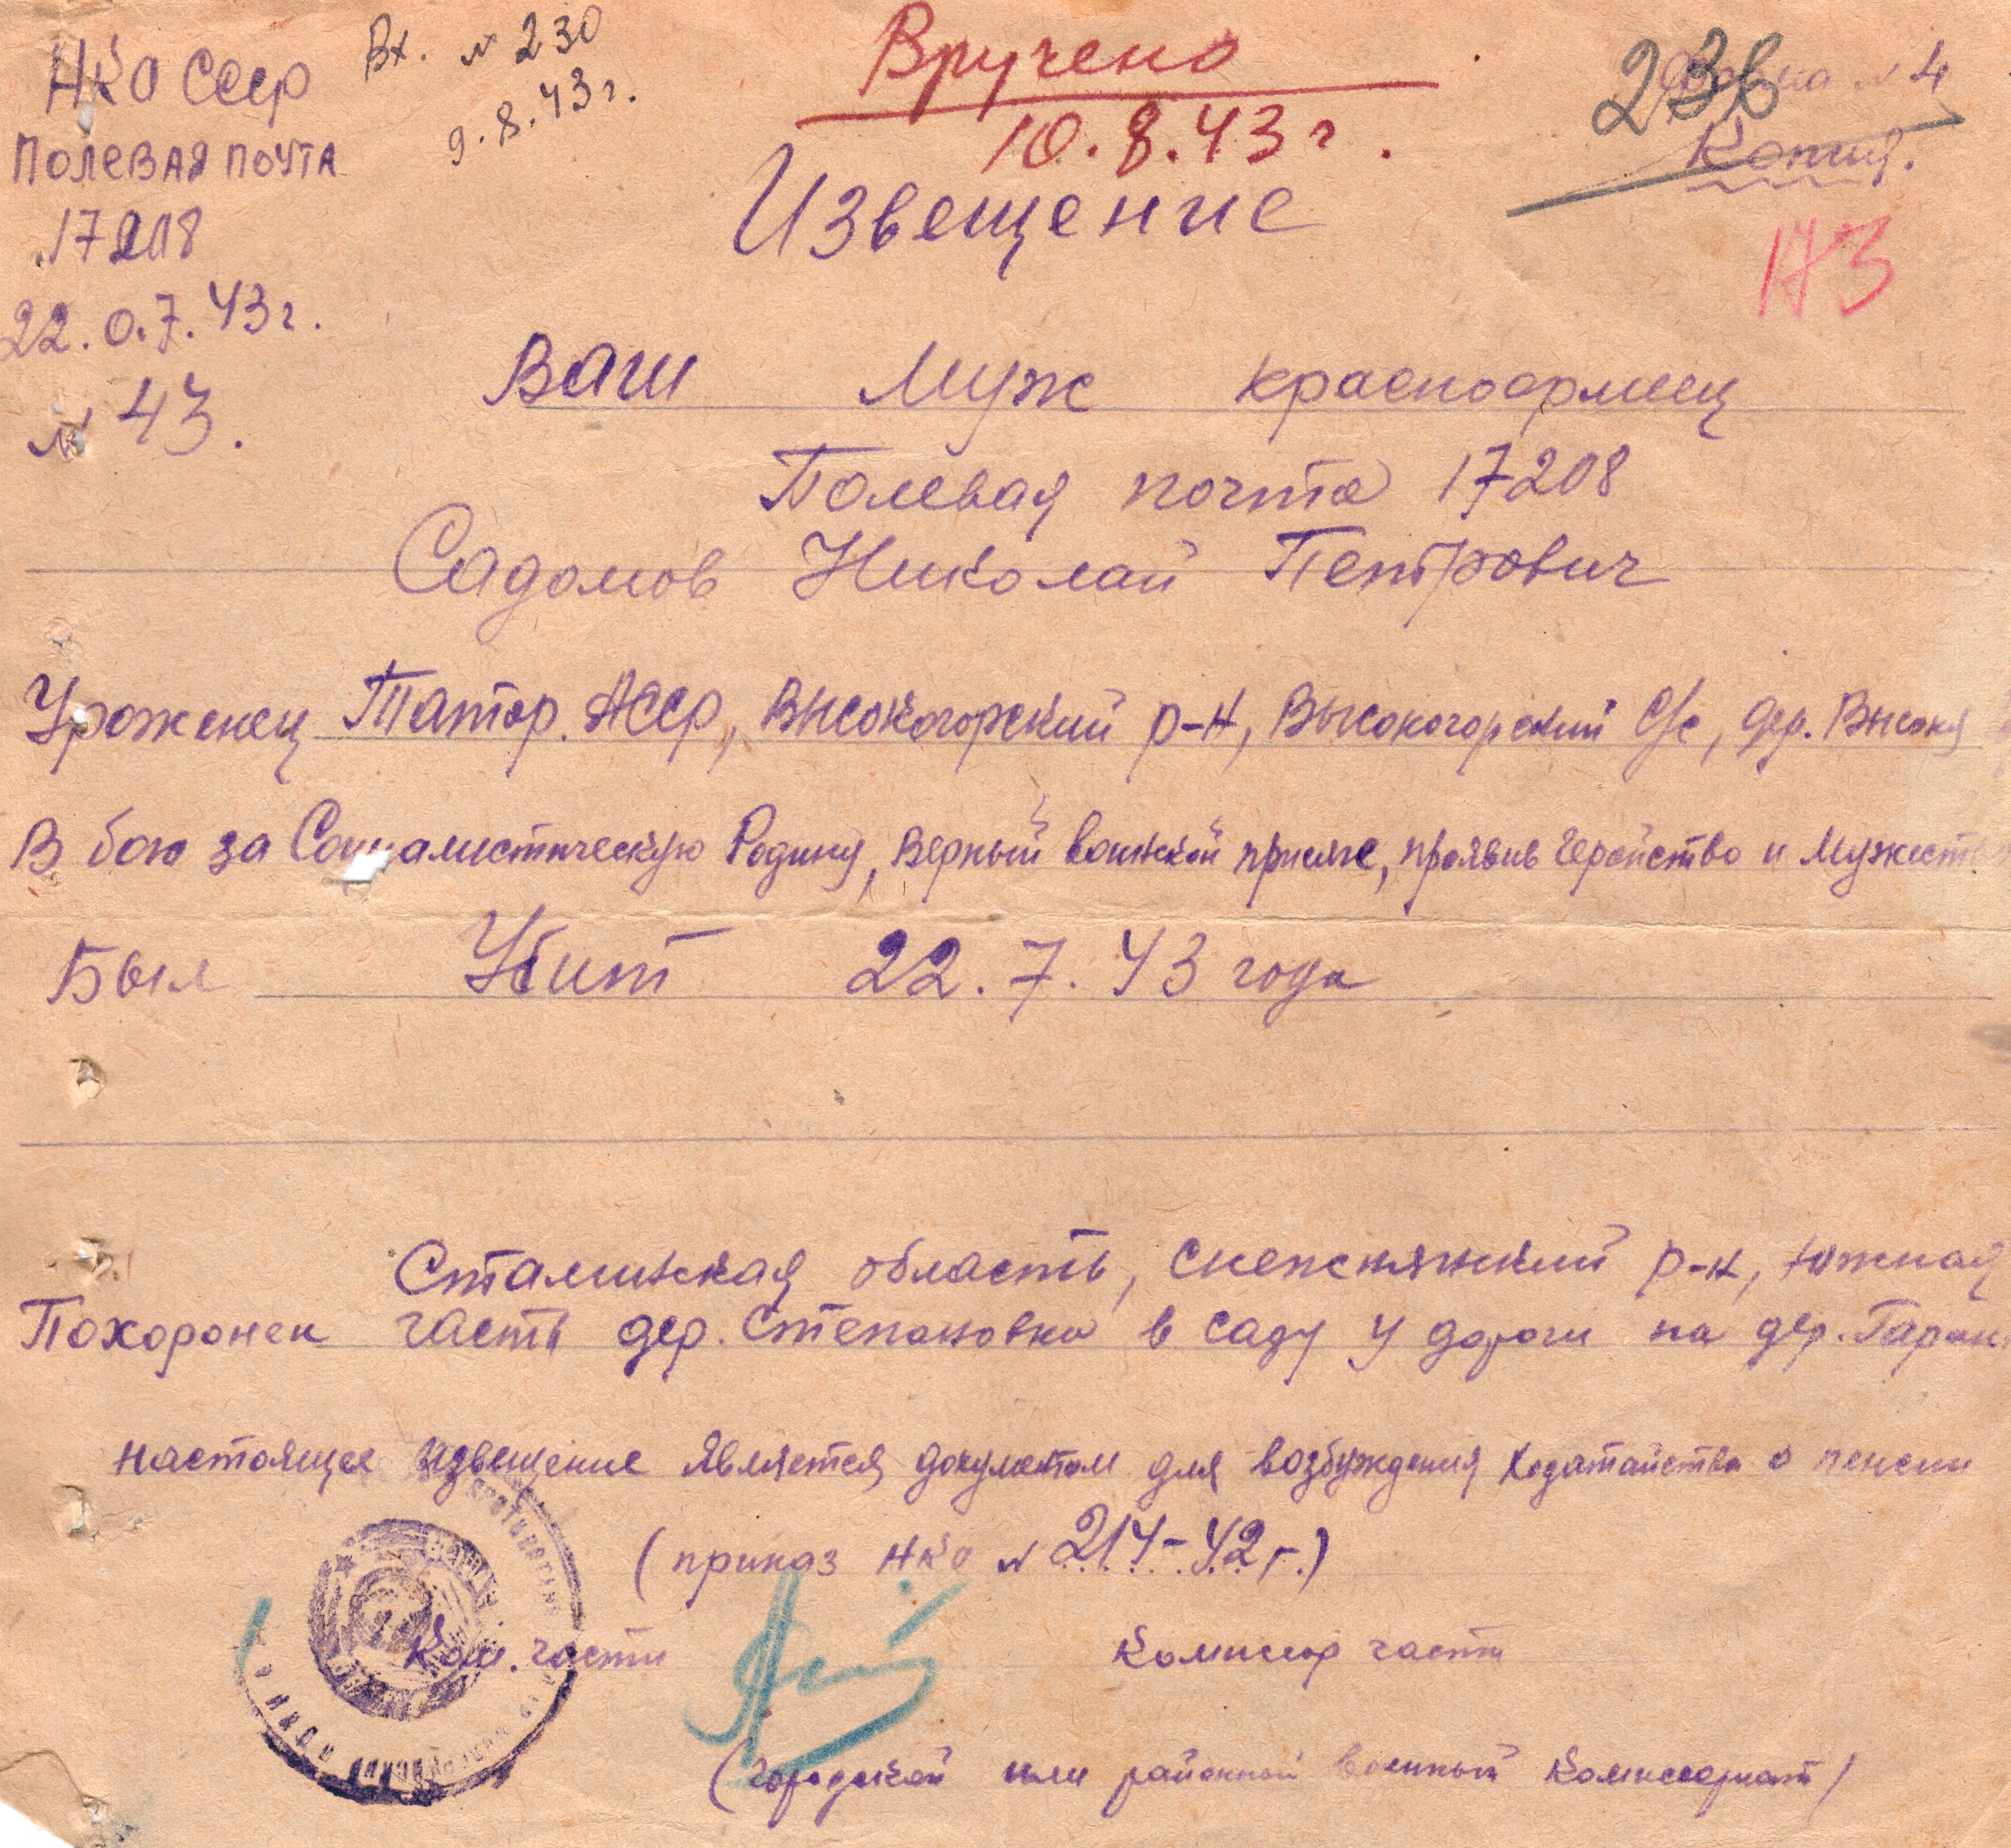 НКО СССР
Вх. № 230
9.8.43г.
Вручено
10.8.43 г.
236
Форма № 4
Копия.
173
Полевая почта
17208
22.0.7.43г.
№ 43.
Извещение
Ваш муж красноармеец
Полевая почта 17208
Садомов Николай Петрович
Уроженец Татар. АССР, Высокогорский р-н, Высокогорский с/с, дер.
В бою за Социалистическую Родину, верный воинской присяге, проявив геройство и мужество
Был Убит 22.7.43 года
Сталинская область, Снежнянский р-н, южная
Похоронен часть дер. Степановка в саду у дороги на дер.
настоящее извещение является документом для возбуждения ходатайства о пенсии
(приказ НКО № 214-42г.)
Ком. части
Комиссар части
(городской или районный военный комиссариат)